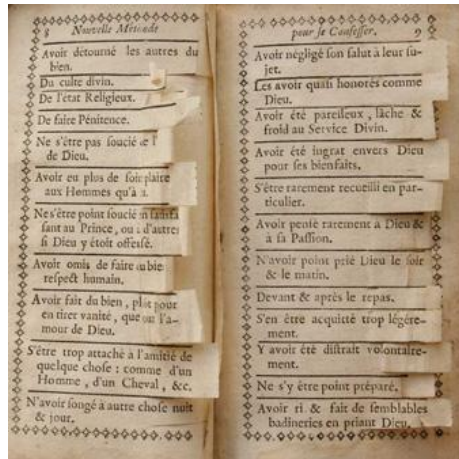 8 Nouvelle Méthode
Avoir détourné les autres du
bien.
Du culte divin.
De l'état Religieux.
De faire Pénitence.
Ne s'être pas soucié
de Dieu.
Avoir eu plus de soin plaire
aux Hommes qu'à
Ne s'être point soucié
sant au Prince, ou d'autres
si Dieu y étoit offensé.
Avoir omis de faire bien
respect humain.
Avoir fait du bien, plût pour
en tirer vanité, que l'a-
mour de Dieu.
S'être trop attaché à l'amitié de
quelque chose : comme d'un
Homme, d'un Cheval, &c.
N'avoir songé à autre chose nuit
& jour.
pour se Confesser. 9
Avoir négligé son salut à leur su-
jet.
Les avoir quasi honorés comme
Dieu.
Avoir été paresseux, lâche &
froid au Service Divin.
Avoir été ingrat envers Dieu
pour ses bienfaits.
S'être rarement recueilli en par-
ticulier.
Avoir pensé rarement à Dieu &
à sa Passion.
N'avoir point prié Dieu le soir
& le matin.
Devant & après le repas.
S'en être acquitté trop légére-
ment.
Y avoir été distrait volontaire-
ment.
Ne s'y être point préparé.
Avoir ri & fait de semblables
badineries en priant Dieu.